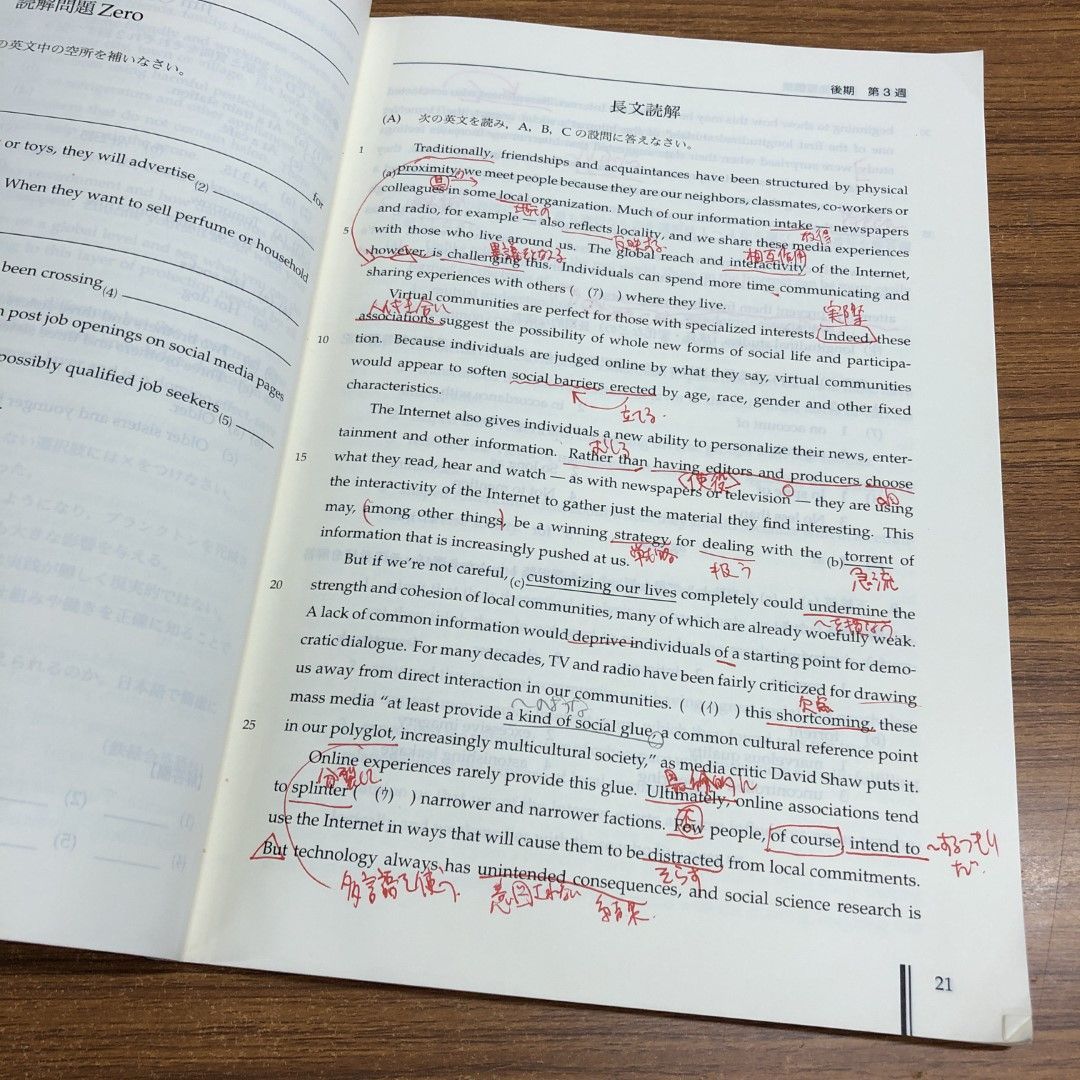 読解問題 Zero
の英文中の空所を補いなさい。
or toys, they will advertise (2) for
When they want to sell perfume or household
been crossing (4)
n post job openings on social media pages
possibly qualified job seekers (5)
後期 第3週
長文読解
(A) 次の英文を読み, A, B, C の設問に答えなさい。
1 Traditionally, friendships and acquaintances have been structured by physical
(a) proximity; we meet people because they are our neighbors, classmates, co-workers or
colleagues in some local organization. Much of our information intake — newspapers
地元の
取得
and radio, for example — also reflects locality, and we share these media experiences
反映する
5 with those who live around us. The global reach and interactivity of the Internet,
異議を唱える
相互作用
however, is challenging this. Individuals can spend more time communicating and
sharing experiences with others ( (ア) ) where they live.
人付き合い
実際
Virtual communities are perfect for those with specialized interests. Indeed, these
associations suggest the possibility of whole new forms of social life and participa-
10 tion. Because individuals are judged online by what they say, virtual communities
would appear to soften social barriers erected by age, race, gender and other fixed
立てる
characteristics.
The Internet also gives individuals a new ability to personalize their news, enter-
むしろ
tainment and other information. Rather than having editors and producers choose
〈使役〉
O
15 what they read, hear and watch — as with newspapers or television — they are using
the interactivity of the Internet to gather just the material they find interesting. This
may, (among other things), be a winning strategy for dealing with the (b) torrent of
戦略
扱う
急流
information that is increasingly pushed at us.
But if we're not careful, (c) customizing our lives completely could undermine the
20 strength and cohesion of local communities, many of which are already woefully weak.
A lack of common information would deprive individuals of a starting point for demo-
cratic dialogue. For many decades, TV and radio have been fairly criticized for drawing
us away from direct interaction in our communities. ( (イ) ) this shortcoming, these
欠点
〜のような
mass media "at least provide a kind of social glue, a common cultural reference point
25 in our polyglot, increasingly multicultural society," as media critic David Shaw puts it.
Online experiences rarely provide this glue. Ultimately, online associations tend
分裂して
最終的に
to splinter ( (ウ) ) narrower and narrower factions. Few people, of course, intend to
〜するつもりだ
use the Internet in ways that will cause them to be distracted from local commitments.
そらす
But technology always has unintended consequences, and social science research is
多言語を使う
意図されない
結果
21